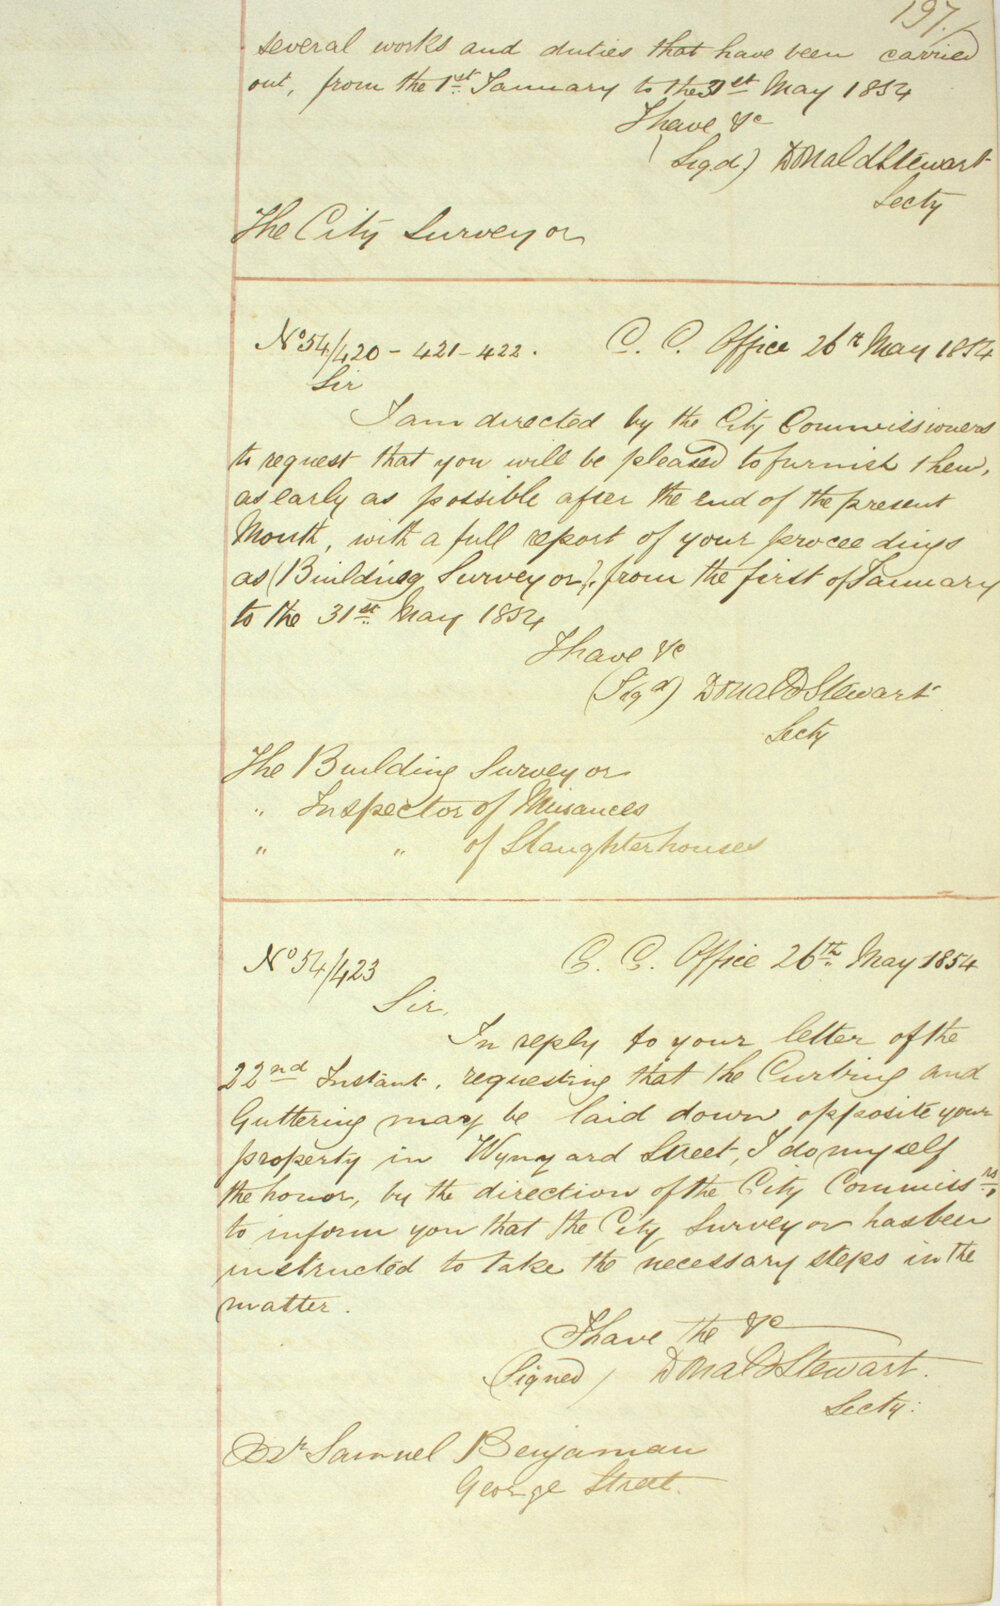 197/
several works and duties that have been carried
out, from the 1st January to the 31st May 1854
I have &c
(Sigd) Donald Stewart
Secty
The City Surveyor
No 54/420 - 421 - 422. C. C. Office 26th May 1854
Sir
I am directed by the City Commissioners
to request that you will be pleased to furnish them,
as early as possible after the end of the present
Month, with a full report of your proceedings
as (Building Surveyor), from the first of January
to the 31st May 1854
I have &c
(Sigd) Donald Stewart
Secty
The Building Surveyor
" Inspector of Nuisances
" " of Slaughterhouses
No 54/423 C. C. Office 26th May 1854
Sir,
In reply to your letter of the
22nd Instant, requesting that the Curbing and
Guttering may be laid down opposite your
property in Wynyard Street, I do myself
the honor, by the direction of the City Commissnrs,
to inform you that the City Surveyor has been
instructed to take the necessary steps in the
matter.
I have the &c
(Signed) Donald Stewart.
Secty:
Mr Samuel Benjaman
George Street.